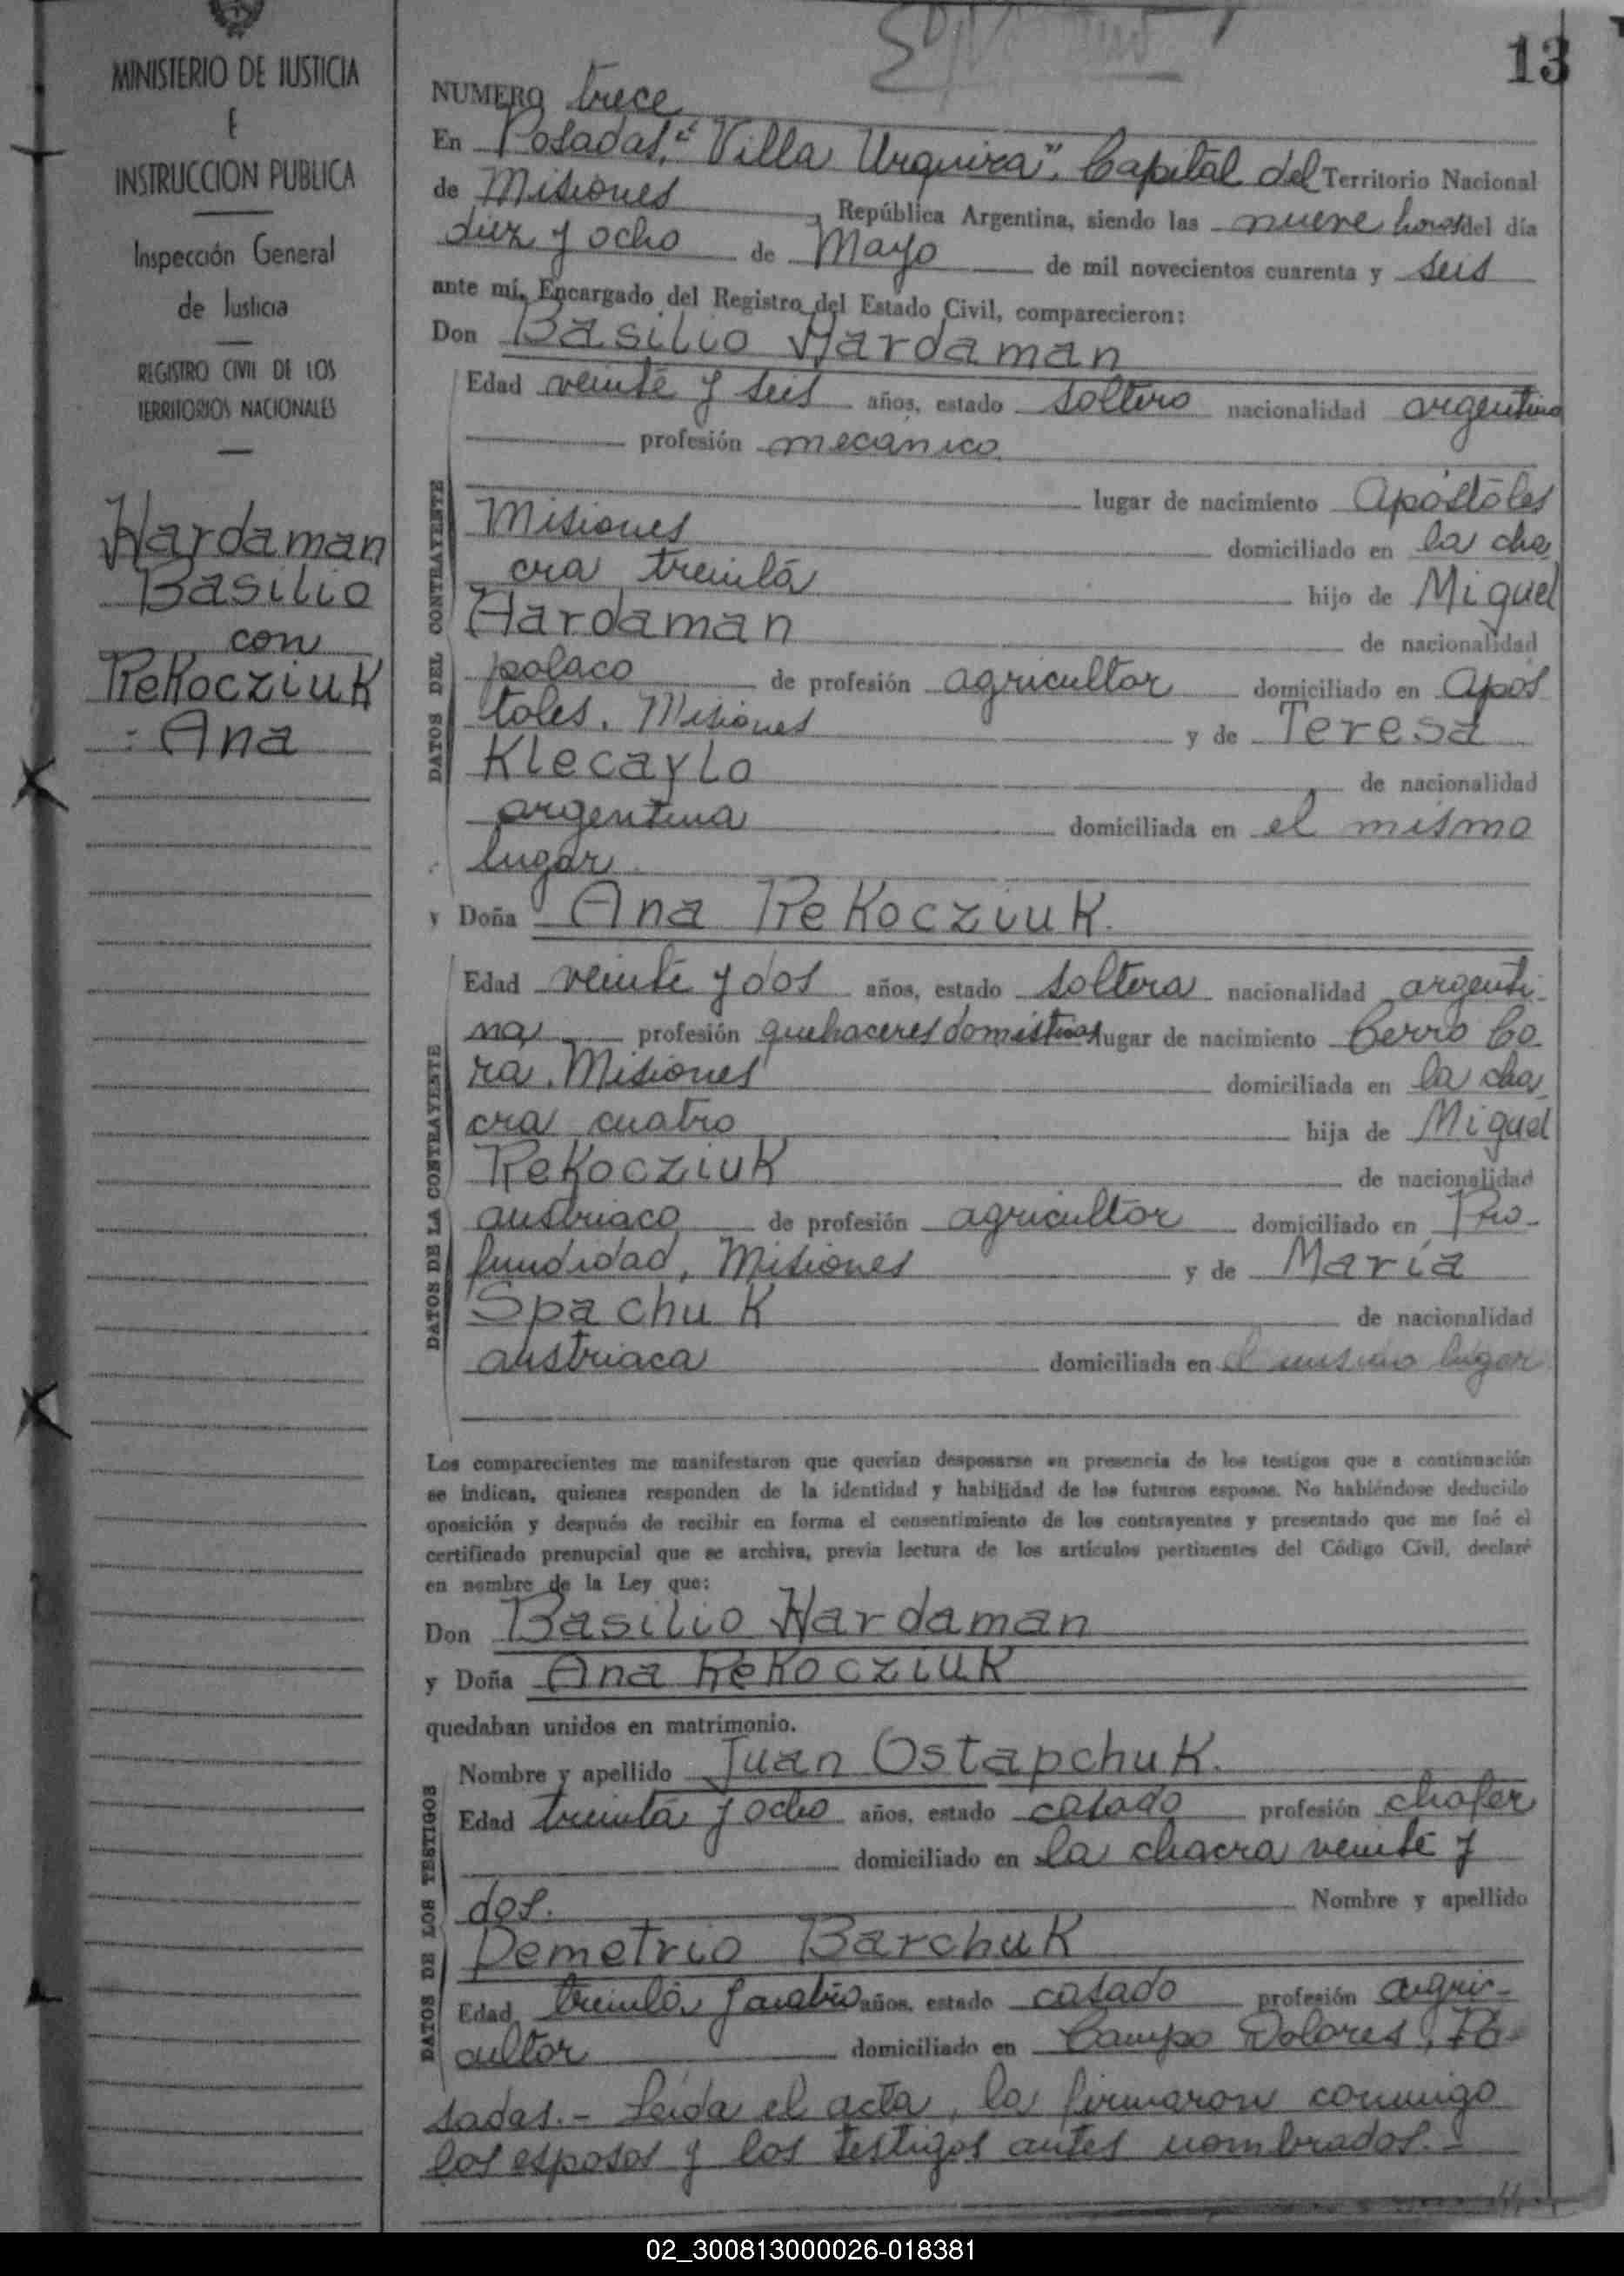 13
MINISTERIO DE JUSTICIA
E
INSTRUCCION PUBLICA
Inspección General
de Justicia
REGISTRO CIVIL DE LOS
TERRITORIOS NACIONALES
Hardaman
Basilio
con
Rekocziuk
Ana
NUMERO trece
En Posadas, "Villa Urquiza", Capital del Territorio Nacional
de Misiones, República Argentina, siendo las nueve horas del día
diez y ocho de Mayo de mil novecientos cuarenta y seis
ante mí, Encargado del Registro del Estado Civil, comparecieron:
Don Basilio Hardaman
DATOS DEL CONTRAYENTE
Edad veinte y seis años, estado soltero nacionalidad argentino
profesión mecánico
lugar de nacimiento Apóstoles
Misiones domiciliado en la cha
cra treinta hijo de Miguel
Hardaman de nacionalidad
polaco de profesión agricultor domiciliado en Após
toles. Misiones y de Teresa
Klecaylo de nacionalidad
argentina domiciliada en el mismo
lugar
y Doña Ana Rekocziuk.
DATOS DE LA CONTRAYENTE
Edad veinte y dos años, estado soltera nacionalidad argenti-
na profesión quehaceres domésticos lugar de nacimiento Cerro Co-
rá, Misiones domiciliada en la cha
cra cuatro hija de Miguel
Rekocziuk de nacionalidad
austriaco de profesión agricultor domiciliado en Pro-
fundidad, Misiones y de María
Spachuk de nacionalidad
austriaca domiciliada en el mismo lugar
Los comparecientes me manifestaron que querían desposarse en presencia de los testigos que a continuación
se indican, quienes responden de la identidad y habilidad de los futuros esposos. No habiéndose deducido
oposición y después de recibir en forma el consentimiento de los contrayentes y presentado que me fué el
certificado prenupcial que se archiva, previa lectura de los artículos pertinentes del Código Civil, declaré
en nombre de la Ley que:
Don Basilio Hardaman
y Doña Ana Rekocziuk
quedaban unidos en matrimonio.
DATOS DE LOS TESTIGOS
Nombre y apellido Juan Ostapchuk.
Edad treinta y ocho años, estado casado profesión chofer
domiciliado en la chacra veinte y
dos. Nombre y apellido
Demetrio Barchuk
Edad treinta y cuatro años, estado casado profesión agric-
cultor domiciliado en Campo Dolores, Po-
sadas.- Leída el acta, la firmaron conmigo
los esposos y los testigos antes nombrados.-
02_300813000026-018381